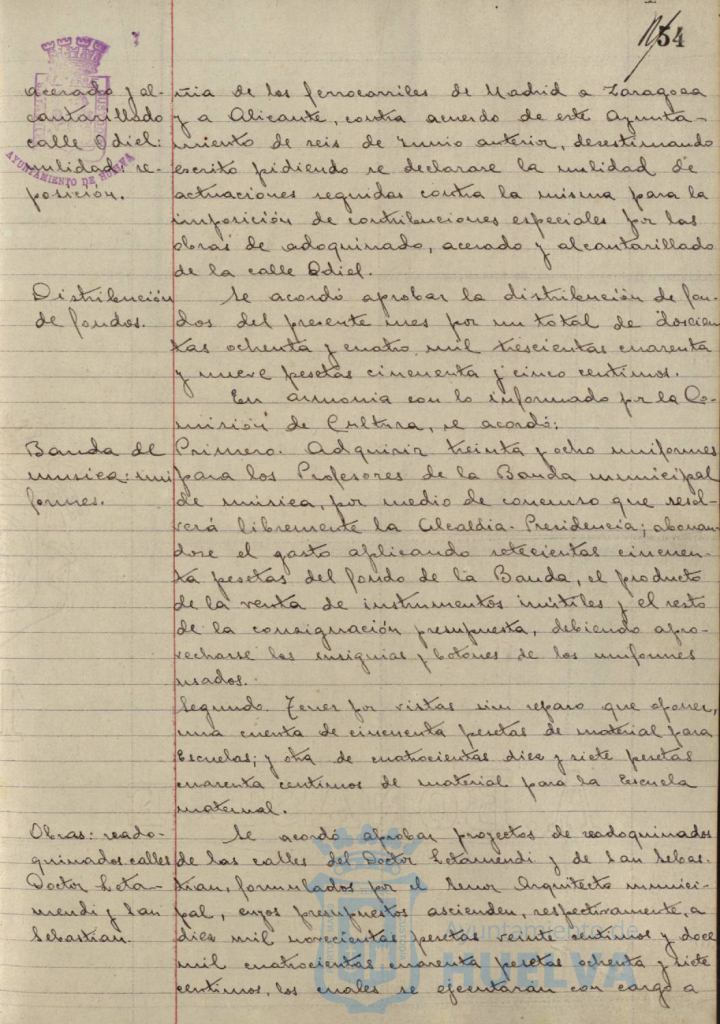 54
acerado y al-
cantarillado
calle Odiel:
nulidad: re-
posición.
AYUNTAMIENTO DE HUELVA
ñia de los ferrocarriles de Madrid a Zaragoza
y a Alicante, contra acuerdo de este Ayunta-
miento de seis de Junio anterior, desestimando
escrito pidiendo se declarase la nulidad de
actuaciones seguidas contra la misma para la
imposición de contribuciones especiales por las
obras de adoquinado, acerado y alcantarillado
de la calle Odiel.
Distribución
de fondos.
Se acordó aprobar la distribución de fon-
dos del presente mes por un total de doscien-
tas ochenta y cuatro mil trescientas cuarenta
y nueve pesetas cincuenta y cinco centimos.
En armonia con lo informado por la Co-
misión de Cultura, se acordó:
Banda de
musica: uni
formes.
Primero. Adquirir treinta y ocho uniformes
para los Profesores de la Banda municipal
de música, por medio de concurso que resol-
verá libremente la Alcaldia-Presidencia; abonan-
dose el gasto aplicando setecientas cincuen-
ta pesetas del fondo de la Banda, el producto
de la venta de instrumentos inútiles y el resto
de la consignación presupuesta, debiendo apro-
vecharse las insignias y botones de los uniformes
usados.
Segundo. Tener por vistas sin reparo que oponer,
una cuenta de cincuenta pesetas de material para
Escuelas; y otra de cuatrocientas diez y siete pesetas
cuarenta centimos de material para la Escuela
maternal.
Obras: reado-
quinados calles
Doctor Leta-
mendi y San
Sebastian.
Se acordó aprobar proyectos de readoquinados
de las calles del Doctor Letamendi y de San Sebas-
tian, formulados por el Señor Arquitecto munici-
pal, cuyos presupuestos ascienden, respectivamente, a
diez mil novecientas pesetas veinte centimos y doce
mil cuatrocientas cuarenta pesetas ochenta y siete
centimos, los cuales se ejecutarán con cargo a
Ayuntamiento de
HUELVA